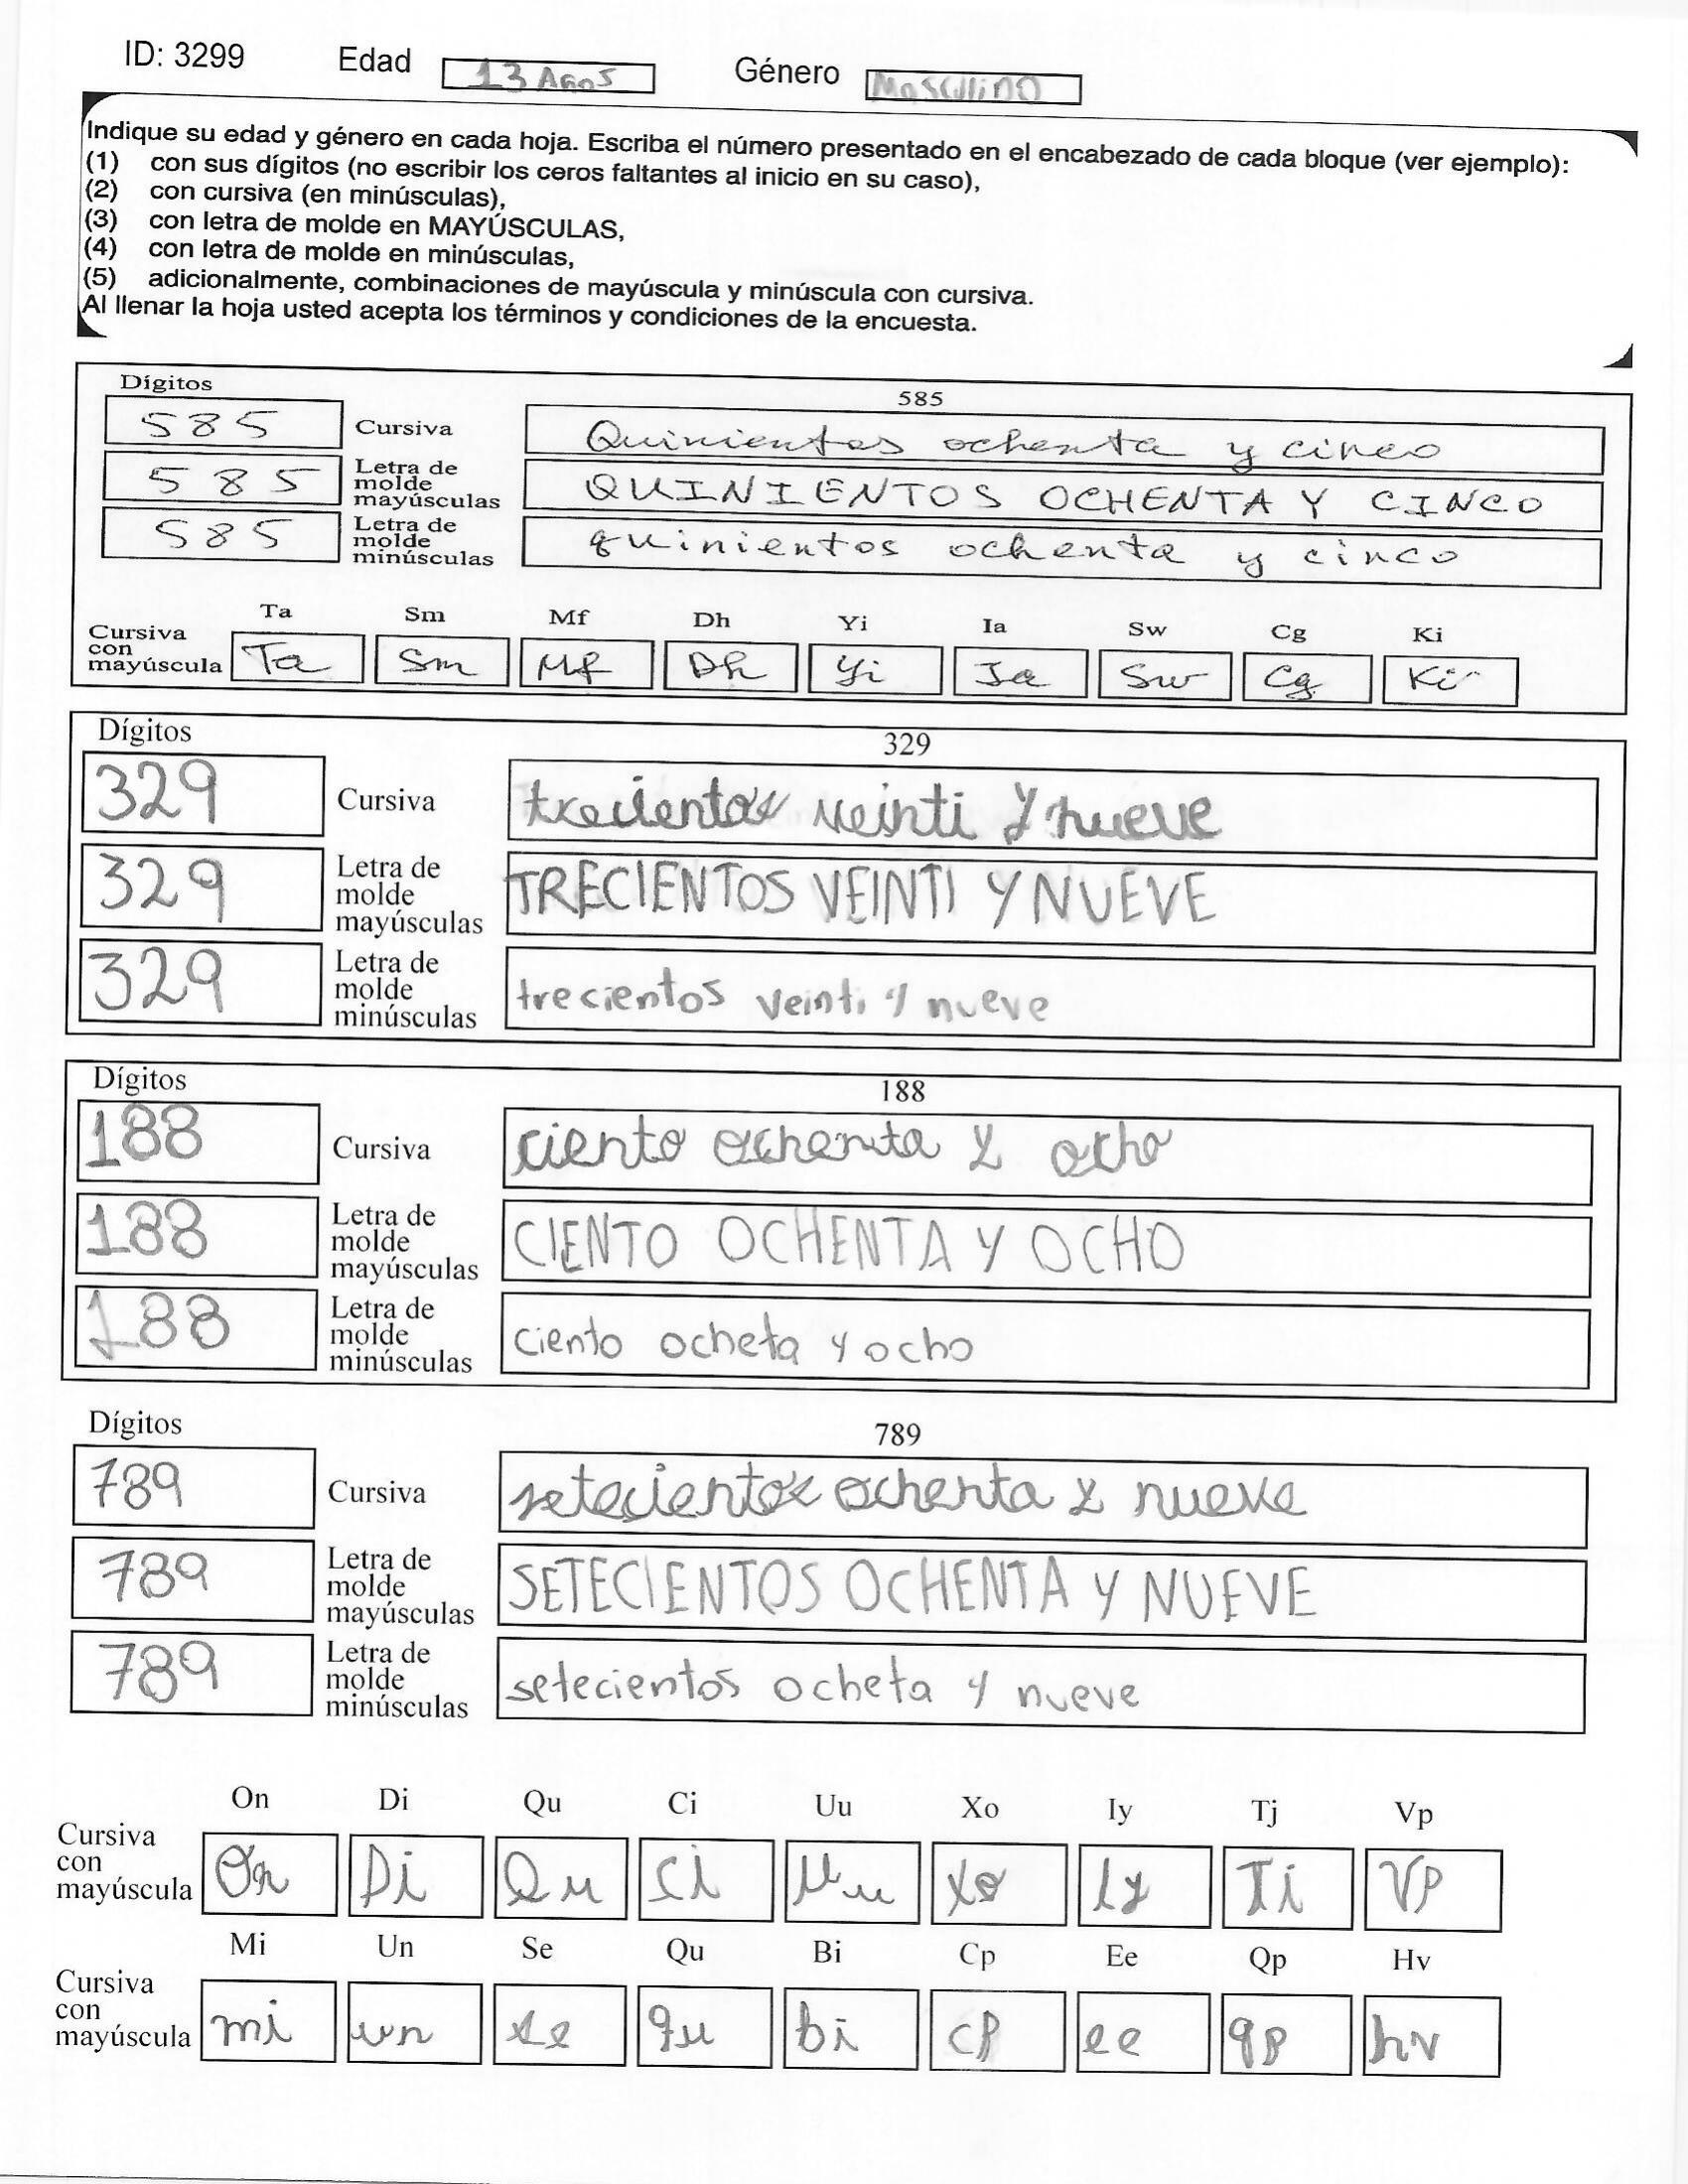 ID: 3299 Edad 13 Años Género Masculino
Indique su edad y género en cada hoja. Escriba el número presentado en el encabezado de cada bloque (ver ejemplo):
(1) con sus dígitos (no escribir los ceros faltantes al inicio en su caso),
(2) con cursiva (en minúsculas),
(3) con letra de molde en MAYÚSCULAS,
(4) con letra de molde en minúsculas,
(5) adicionalmente, combinaciones de mayúscula y minúscula con cursiva.
Al llenar la hoja usted acepta los términos y condiciones de la encuesta.
Dígitos 585
585 Cursiva Quinientos ochenta y cinco
585 Letra de molde mayúsculas QUINIENTOS OCHENTA Y CINCO
585 Letra de molde minúsculas quinientos ochenta y cinco
Ta Sm Mf Dh Yi Ia Sw Cg Ki
Cursiva con mayúscula Ta Sm Mf Dh Yi Ia Sw Cg Ki
Dígitos 329
329 Cursiva trecientos veinti y nueve
329 Letra de molde mayúsculas TRECIENTOS VEINTI Y NUEVE
329 Letra de molde minúsculas trecientos veinti y nueve
Dígitos 188
188 Cursiva ciento ochenta y ocho
188 Letra de molde mayúsculas CIENTO OCHENTA Y OCHO
188 Letra de molde minúsculas ciento ocheta y ocho
Dígitos 789
789 Cursiva setecientos ochenta y nueve
789 Letra de molde mayúsculas SETECIENTOS OCHENTA Y NUEVE
789 Letra de molde minúsculas setecientos ocheta y nueve
On Di Qu Ci Uu Xo Iy Tj Vp
Cursiva con mayúscula On Di Qu Ci Uu Xo Iy Ti Vp
Mi Un Se Qu Bi Cp Ee Qp Hv
Cursiva con mayúscula mi un se qu bi cp ee qp hv